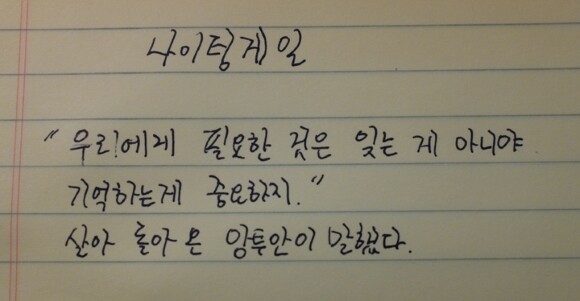 나이팅게일
"우리에게 필요한 것은 잊는 게 아니야
기억하는게 중요하지."
살아 돌아온 앙투안이 말했다.